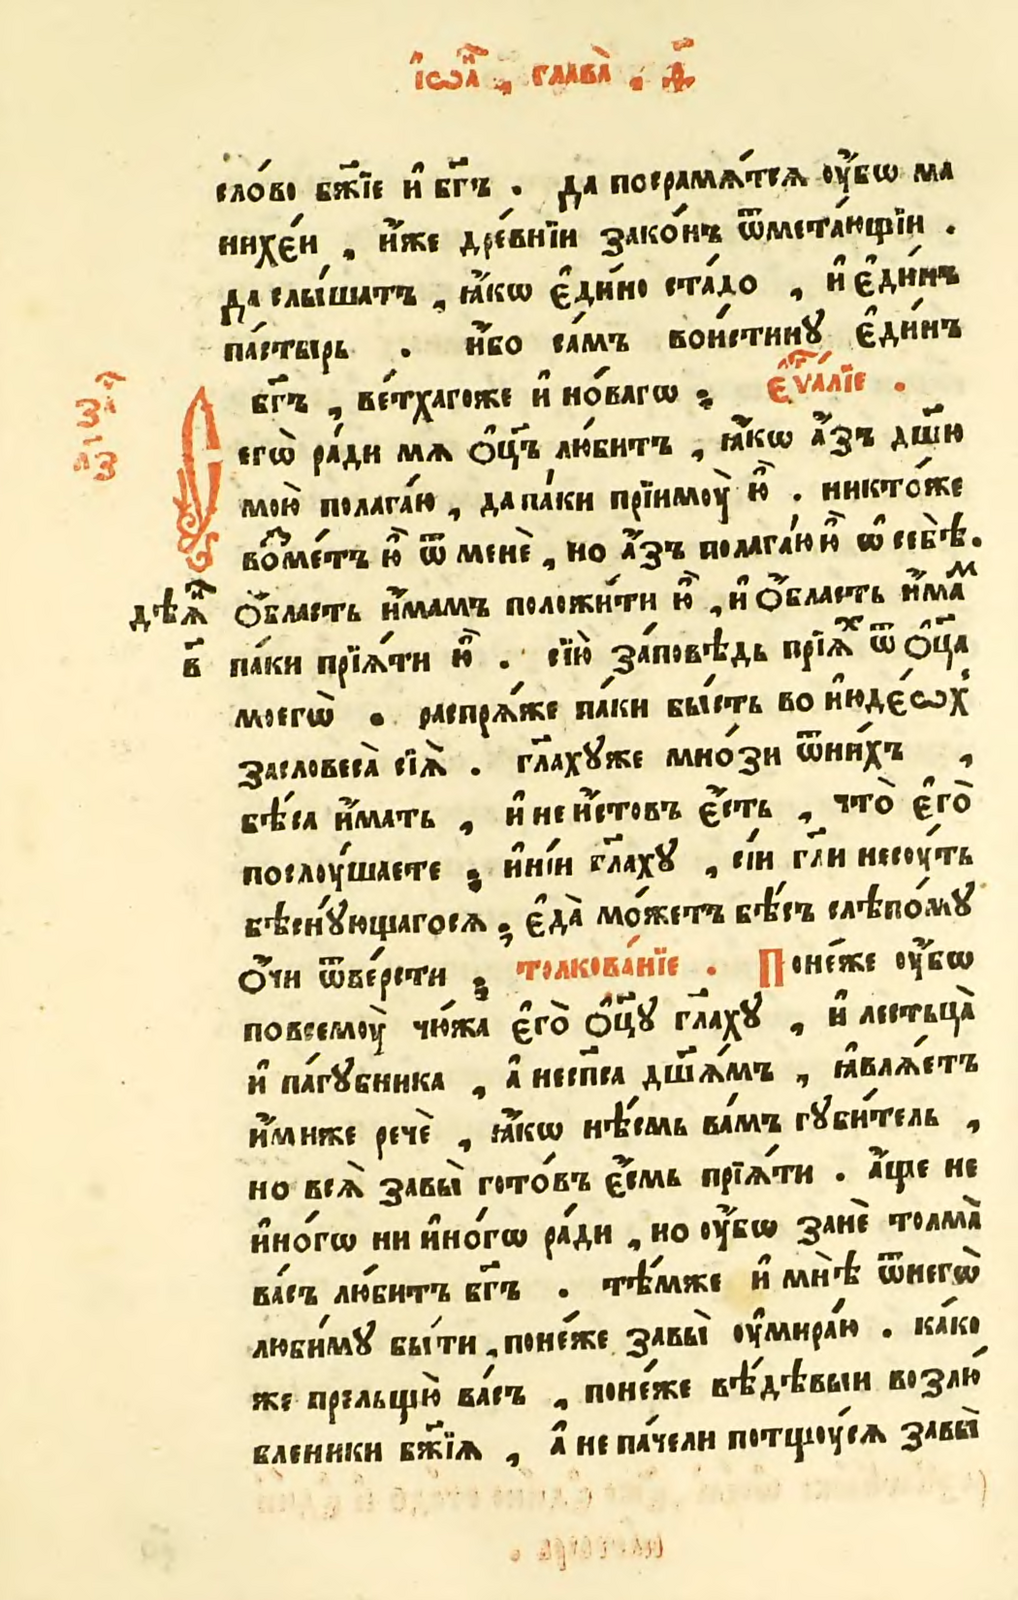 і҆ѡа҃н , глава̀ , і҃
сло́во бж҃їе и҆ бг҃ъ . да посрамѧ́тсѧ ᲂу҆́бѡ ма
нихє́и , и҆́же дре́внїи зако́нъ ѿмета́ющїи .
да слы́шатъ , ꙗ҆́кѡ є҆ди́но ста́до , и҆ є҆ди́нъ
па́стырь . и҆́бо са́мъ вои́стинꙋ є҆ди́нъ
бг҃ъ , ве́тхагоже и҆ но́вагѡ ; є҆ѵⷢ҇алїе .
за҃ч
л҃з
Сегѡ̀ ра́ди мѧ ѻ҆ц҃ъ лю́битъ , ꙗ҆́кѡ а҆́зъ дш҃ю
мою̀ полага́ю , да па́ки прїимоу̀ ю҆̀ . никто́же
во́ⷥметъ ю҆̀ ѿ менѐ , но а҆́зъ полага́ю ю҆̀ ѡ҆ себѣ̀ .
дѣѧ҃н ѻ҆́бласть и҆́мамъ положи́ти ю҆̀ , и҆ ѻ҆́бласть и҆́маⷨ
в҃ па́ки прїѧ́ти ю҆̀ . сїю̀ за́повѣдь прїѧ́ⷯ ѿ ѻ҆ц҃а
моегѡ̀ . распрѧ́же па́ки бы́сть во и҆юде́ѡх
засловеса̀ сїѧ̀ . гл҃ахꙋже мно́зи ѿни́хъ ,
бѣ́са и҆́мать , и҆ не и҆́стовъ є҆́сть , что̀ є҆го̀
послоу́шаете ; и҆ні́и гл҃ахꙋ , сі́и гл҃и несоу́ть
бѣснꙋ́ющагосѧ , є҆да̀ мо́жетъ бѣ́съ слѣпо́мꙋ
ѻ҆́чи ѿве́рсти ; толкова́нїе . Поне́же ᲂу҆́бѡ
повсемоу̀ чю́жа є҆го̀ ѻ҆ц҃ꙋ гл҃ахꙋ , и҆ лестьца̀
и҆ па́гꙋбника , а҆ несп҃са дш҃ѧ́мъ , ꙗ҆влѧ́етъ
и҆́миже речѐ , ꙗ҆́кѡ нѣ́смь ва́мъ гꙋби́тель ,
но всѧ̀ завы̀ гото́въ є҆́смь прїѧ́ти . а҆́ще не
и҆но́гѡ ни и҆но́гѡ ра́ди , но ᲂу҆́бѡ занѐ толма̀
ва́съ лю́битъ бг҃ъ . тѣ́мже и҆ мнѣ̀ ѿнегѡ̀
люби́мꙋ бы́ти , поне́же завы̀ ᲂу҆мира́ю . ка́ко
же прельщю̀ ва́съ , поне́же вѣ́дѣвыи возлю́
бленики бж҃їѧ , а҆ не па́чели потщоу́сѧ завы̀